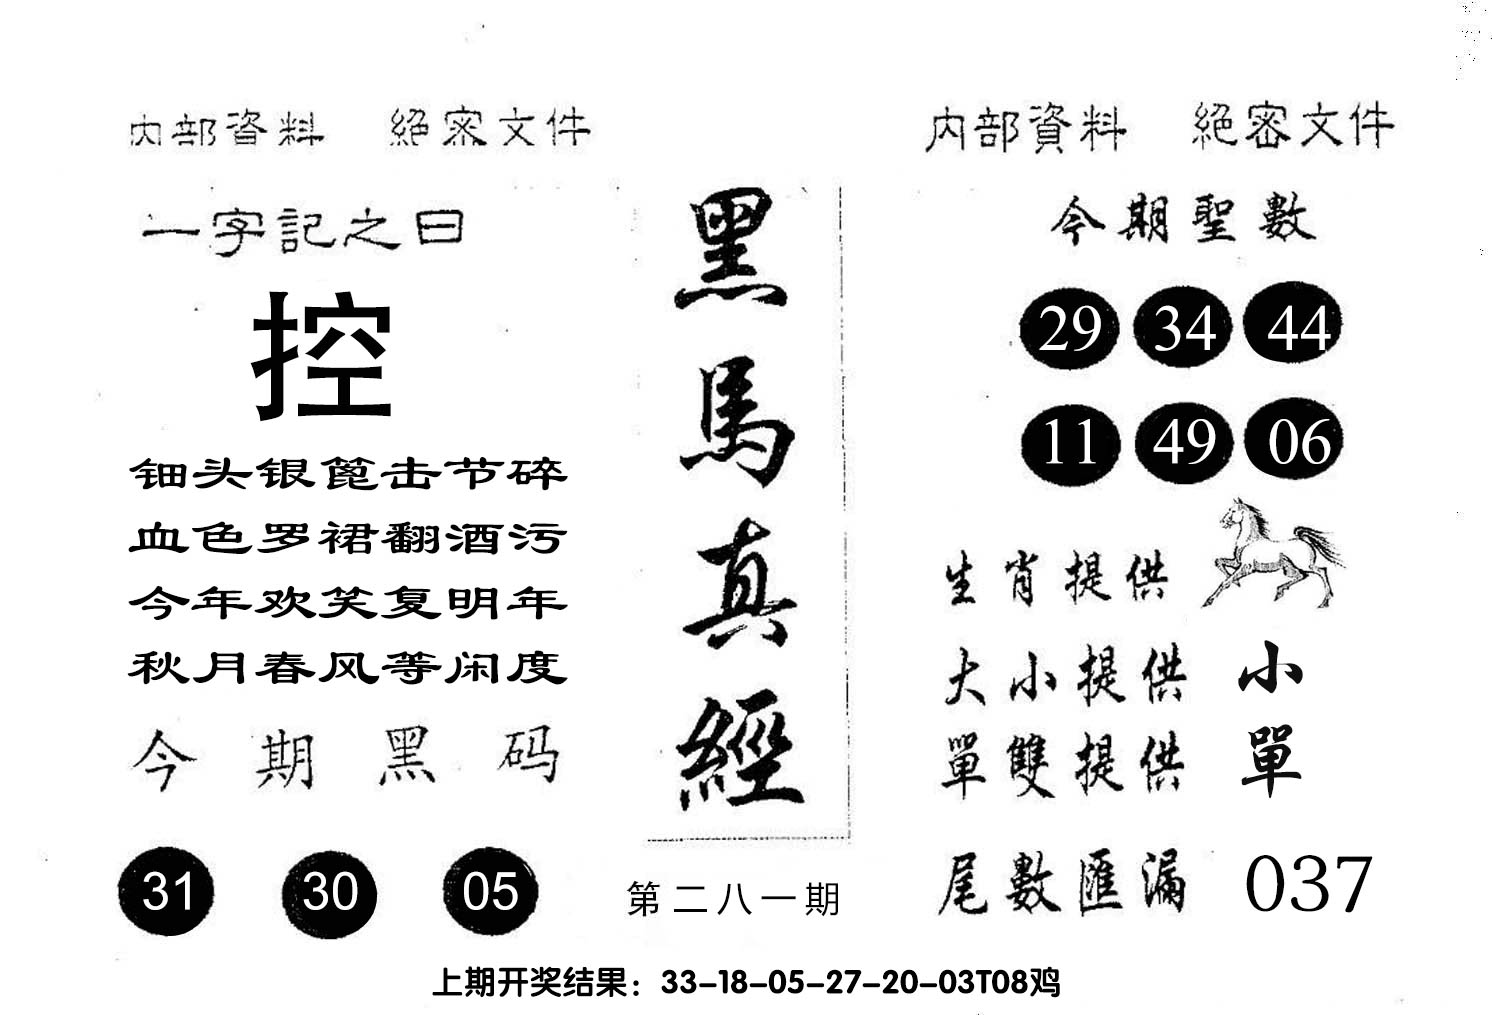 內部資料 絕密文件
一字記之曰
控
钿头银篦击节碎
血色罗裙翻酒污
今年欢笑复明年
秋月春风等闲度
今期黑码
31 30 05
黑馬真經
第二八一期
內部資料 絕密文件
今期聖數
29 34 44
11 49 06
生肖提供
大小提供 小
單雙提供 單
尾數匯漏 037
上期开奖结果：33-18-05-27-20-03T08鸡